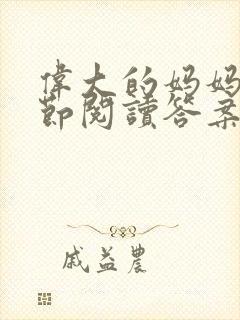 偉大的媽媽
節閱讀答案
戚益農